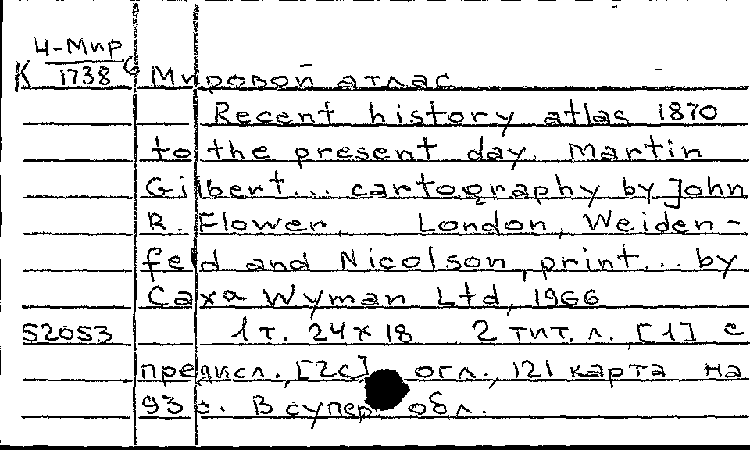 Ч-Мир
К 1738 6 Мировой атлас
Recent history atlas 1870
to the present day. Martin
Gilbert... cartography by John
R. Flower. London, Weiden-
feld and Nicolson, print... by
Caxa Wyman Ltd, 1966
52053 1 т. 24x18 2 тит. л. [1] с
предисл., [2с] огл., 121 карта на
93 с. В супер обл.